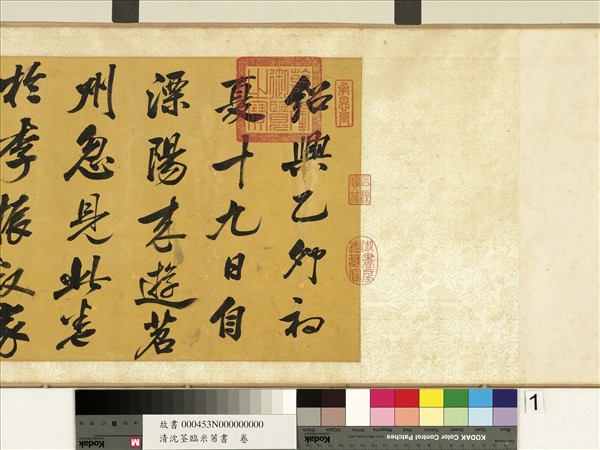 紹興乙卯初
夏十九日自
溧陽来遊苕
州忽見此卷
於李振叔家
乾隆御覽之寶
故書 000453N000000000
清沈荃臨米芾書 卷
1
Kodak
KODAK Color Control Patches
Blue
Cyan
Green
Yellow
Red
Magenta
White
3/Color
Black
Kodak
M
B